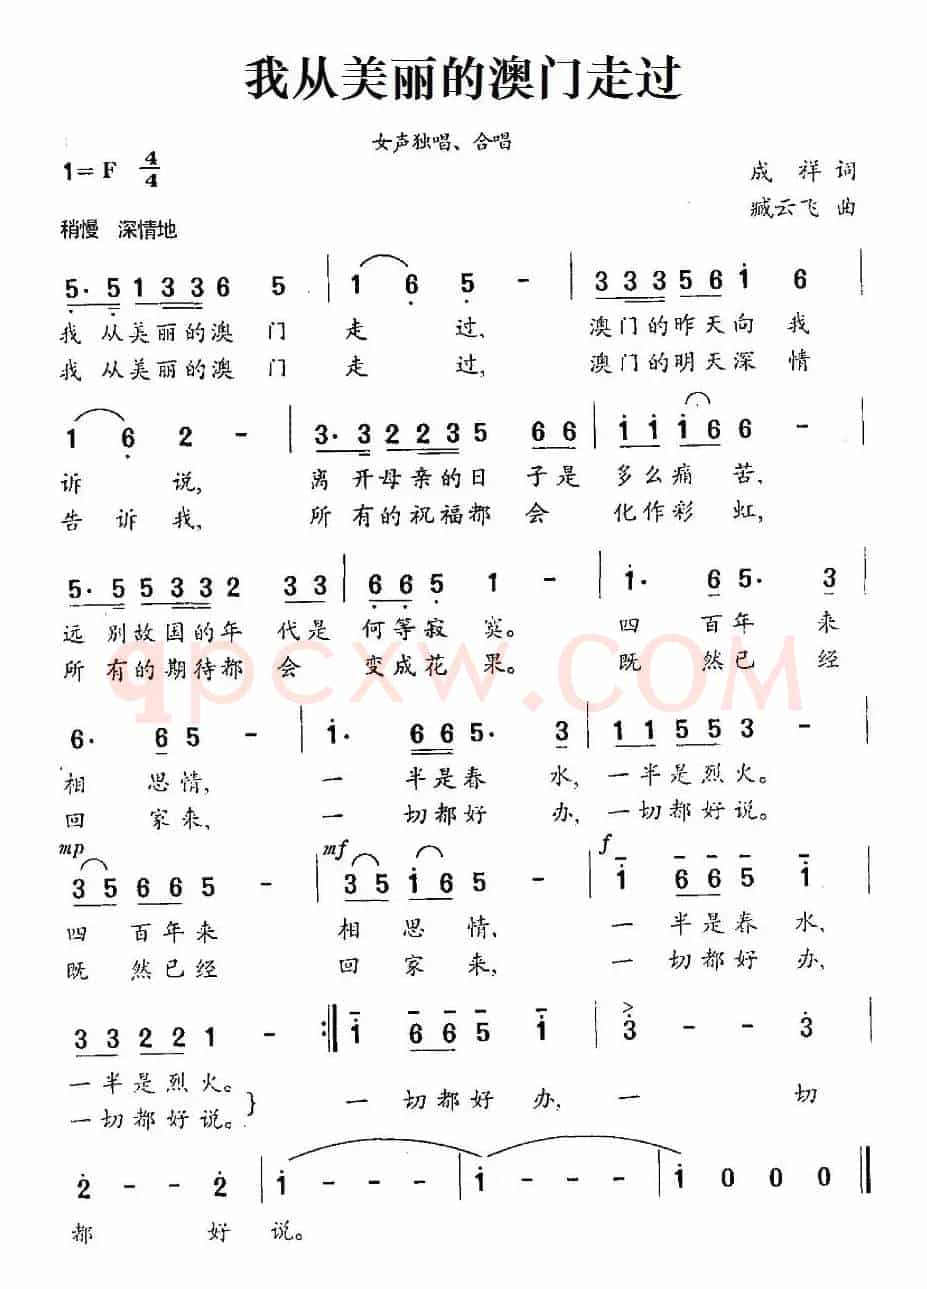 我从美丽的澳门走过
女声独唱、合唱
1=F 4/4
成 祥 词
臧云飞 曲
稍慢 深情地
5· 5 1 3 3 6 5 | 1 6 5 - | 3 3 3 5 6 1 6 |
我 从美丽的澳 门 走 过, 澳门的昨天向 我
我 从美丽的澳 门 走 过, 澳门的明天深 情
1 6 2 - | 3· 3 2 2 3 5 6 6 | 1 1 1 6 6 - |
诉 说, 离 开母亲的日 子是 多么痛 苦,
告 诉 我, 所 有的祝福都 会 化作彩 虹,
5· 5 5 3 3 2 3 3 | 6 6 5 1 - | 1· 6 5· 3 |
远 别故国的年 代是 何等寂 寞。 四 百年 来
所 有的期待都 会 变成花 果。 既 然已 经
qpcxw.COM
6· 6 5 - | 1· 6 6 5· 3 | 1 1 5 5 3 - |
相 思情, 一 半是春 水, 一半是烈火。
回 家来, 一 切都好 办, 一切都好说。
mp mf f
3 5 6 6 5 - | 3 5 1 6 5 - | 1 6 6 5 1 |
四 百年来 相 思 情, 一 半是春 水,
既 然已经 回 家 来, 一 切都好 办,
3 3 2 2 1 - :‖ 1 6 6 5 1 | 3 - - 3 |
一半是烈火。
一切都好说。} 一 切都好 办, 一 切
2 - - 2 | 1 - - - | 1 - - - | 1 0 0 0 ‖
都 好 说。